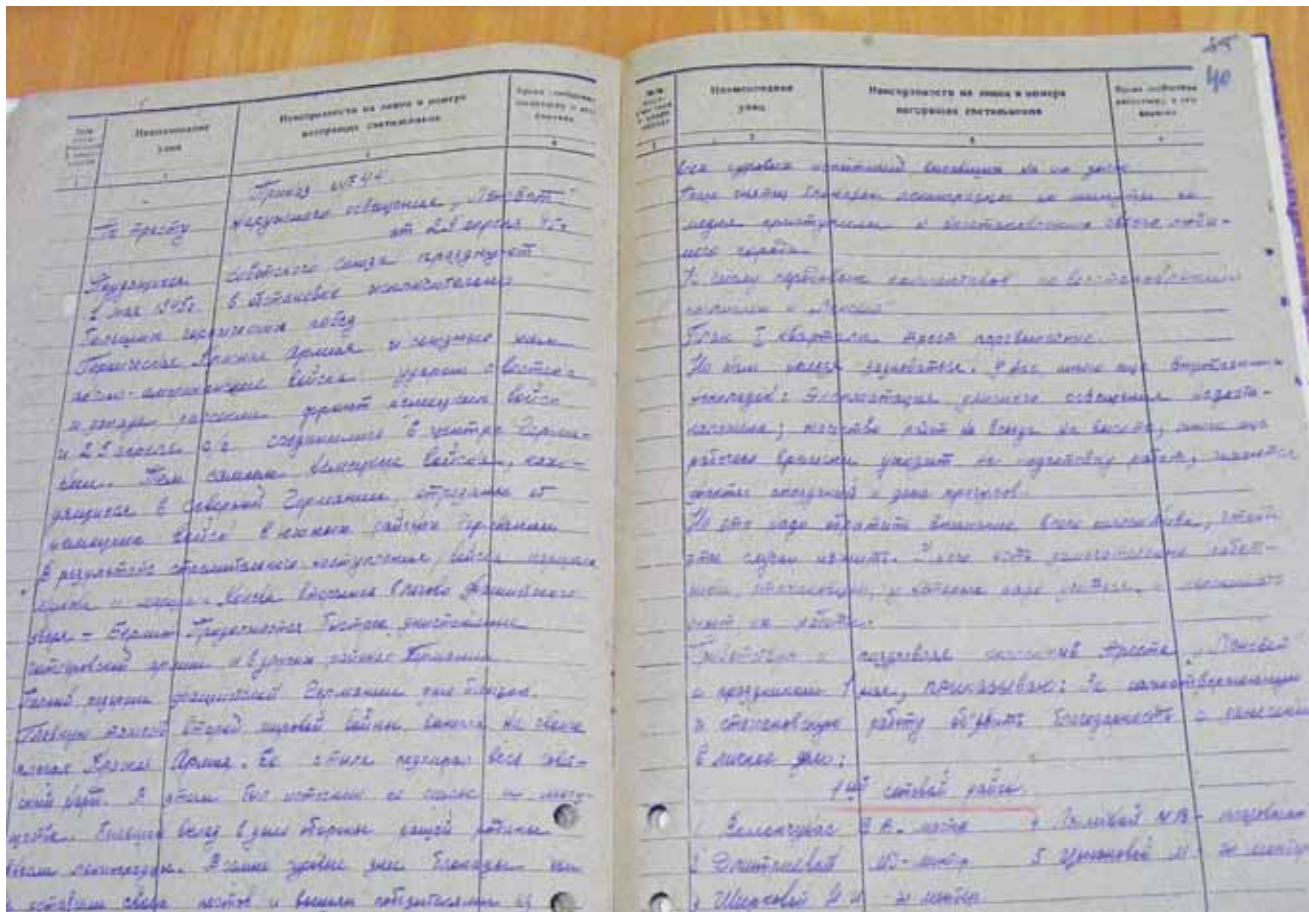 Наименование улиц
Неисправности на линии и номера негорящих светильников
Приказ № 44
По тресту наружного освещения „Ленсвет"
от 29 апреля 45г.
Трудящиеся Советского Союза празднуют
1 мая 1945г. в обстановке исключительно
больших героических побед
Героическая Красная Армия и союзные нам
англо-американские войска ударом с востока
и запада рассекли фронт немецких войск
и 25 апреля с.г. соединились в центре Герма-
нии. Тем самым немецкие войска, нахо-
дящиеся в Северной Германии, отрезаны от
немецких войск в южных районах Германии
В результате стремительного наступления, войска
войска вломились в логово фашистского
зверя – Берлин. Продолжается быстрое уничтожение
гитлеровской армии и в других районах Германии
фашистской Германии уже близок.
Главную тяжесть второй мировой войны вынесла на своих
плечах Красная Армия. Ее с тыла подпирал весь совет-
ский народ. В этом был источник ее силы и могу-
щества. Большой вклад в дело обороны нашей родины
ленинградцы. В самые суровые дни блокады они
оставили своих постов и вышли победителями из
40
Наименование улиц
Неисправности на линии и номера негорящих светильников
1 2 3 4
всех суровых испытаний выпавших на их долю
После снятия блокады ленинградцы не минуты не
медля приступили к восстановлению своего люби-
мого города.
К числу передовых коллективов по восстановлению
относится и „Ленсвет"
План I квартала трест перевыполнил.
Но этим нельзя успокаиваться. У нас много еще внутренних
неполадок: эксплоатация уличного освещения недоста-
налажена; качество работ не всегда на высоте, много еще
рабочего времени уходит на подготовку работ, имеются
факты опозданий и даже прогулов.
На это надо обратить внимание всего коллектива, чтобы
эти случаи изжить. У нас есть замечательные работ-
ники, у которых надо учиться, и
опыт их работы.
поздравляя коллектив треста „Ленсвет"
с праздником 1 мая, приказываю: За самоотверженную
и стахановскую работу об'явить благодарность с занесением
в личное дело:
1ый сетевой район
1 В.А.
2 Дмитриевой монтер 5 М. эл. монтер
3 Ширковой эл. монтер